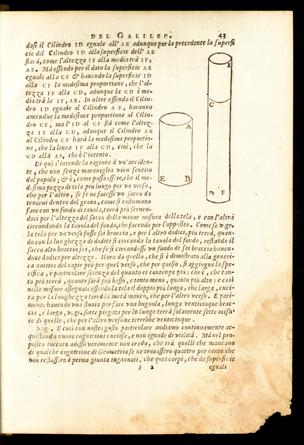 DEL GALILEO. 43
dasi il Cilindro ID eguale all'AE adunque per la precedente la superfi-
cie del Cilindro ID alla superficie dell'AE
starà, come l'altezza IF alla media trà IF,
AB. Mà essendo per il dato la superficie AE
eguale alla CF & havendo la superficie ID
alla CF la medesima proportione, che l'al-
tezza IF alla CD, adunque la CD è me-
dia trà le IF, AB. In oltre essendo il Cilin-
dro ID eguale al Cilindro AE, haranno
amendue la medesima proportione al Cilin-
dro CF, mà l'ID al CF stà come l'altez-
za IF alla CD, adunque il Cilindro AE
al Cilindro CF harà la medesima proportio-
ne, che la linea IF alla CD, cioè, che la
CD alla AB, che è l'intento.
De qui s'intende la ragione d'un'acciden-
te, che non senza maraviglia vien sentito
dal popolo; & è, come possa esser, che il me-
desimo pezzo di tela più lungo per un verso,
che per l'altro, se se ne facesse un sacco da
tenervi dentro del grano, come si costumano
fare con un fondo di tavola, terrà più serven-
doci per l'altezza del sacco della minor misura della tela, e con l'altra
circondando la tavola del fondo, che facendo per l'opposito. Come se v. gr.
la tela per un verso fusse sei braccia, e per l'altro dodici, più terrà, quan-
do con la lunghezza di dodici si circonda la tavola del fondo, restando il
sacco alto braccia sei, che se si circondasse un fondo di sei braccia haven-
done dodici per altezza. Hora da quello, che si è dimostrato alla generi-
ca notitia del capir più per quel verso, che per questo, si aggiugne la spe-
cifica, e particolare scienza del quanto ei contenga più: che è, che tan-
to più terrà, quanto sarà più basso, e tanto meno, quanto più alto: e così
nelle misure assegnate essendo la tela il doppio più lunga, che larga, cuci-
ta per la lunghezza terrà la metà manco, che per l'altro verso. E pari-
mente havendo una stuoia per fare una bugnola, lunga venticinque brac-
cia, e larga, v. gr. sette piegata per lo lungo terrà solamente sette misu-
re di quelle, che per l'altro verso terrebbe venticinque.
Sag. E così con nostro gusto particolare andiamo continuamente ac-
quistando nuove cognitioni curiose, e non ignude di utilità. Mà nel pro-
posito toccato adesso veramente non credo, che trà quelli che mancano
di qualche cognitione di Geometria se ne trovassero quattro per cento che
non restassero a prima giunta ingannati, che quei corpi, che da superficie
F 2 eguali
A
E B
I
C
D F